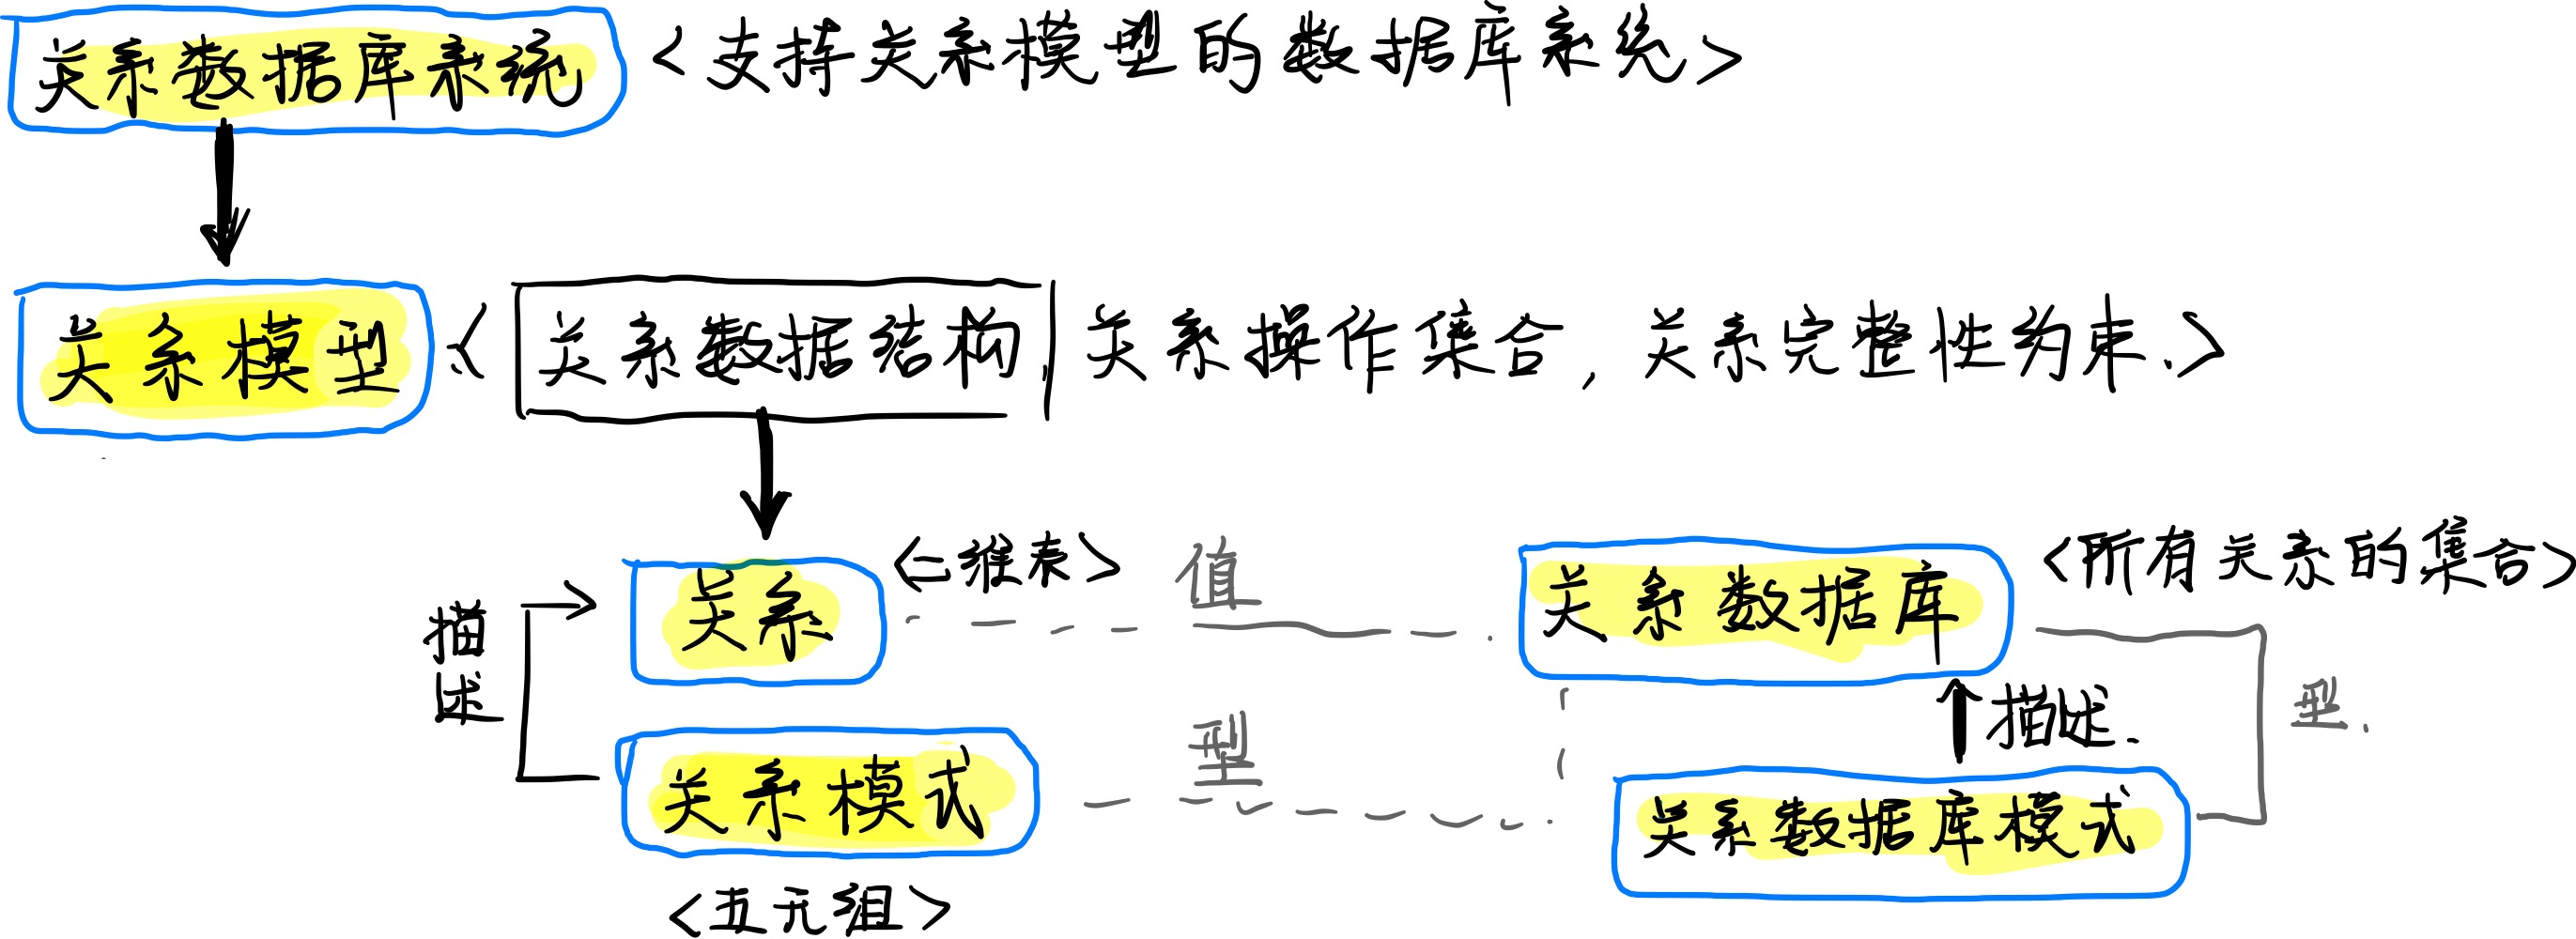 关系数据库系统 <支持关系模型的数据库系统>
关系模型 <关系数据结构, 关系操作集合, 关系完整性约束.>
关系 <二维表> 值 关系数据库 <所有关系的集合>
描述
描述.
型.
型
关系模式
关系数据库模式
<五元组>